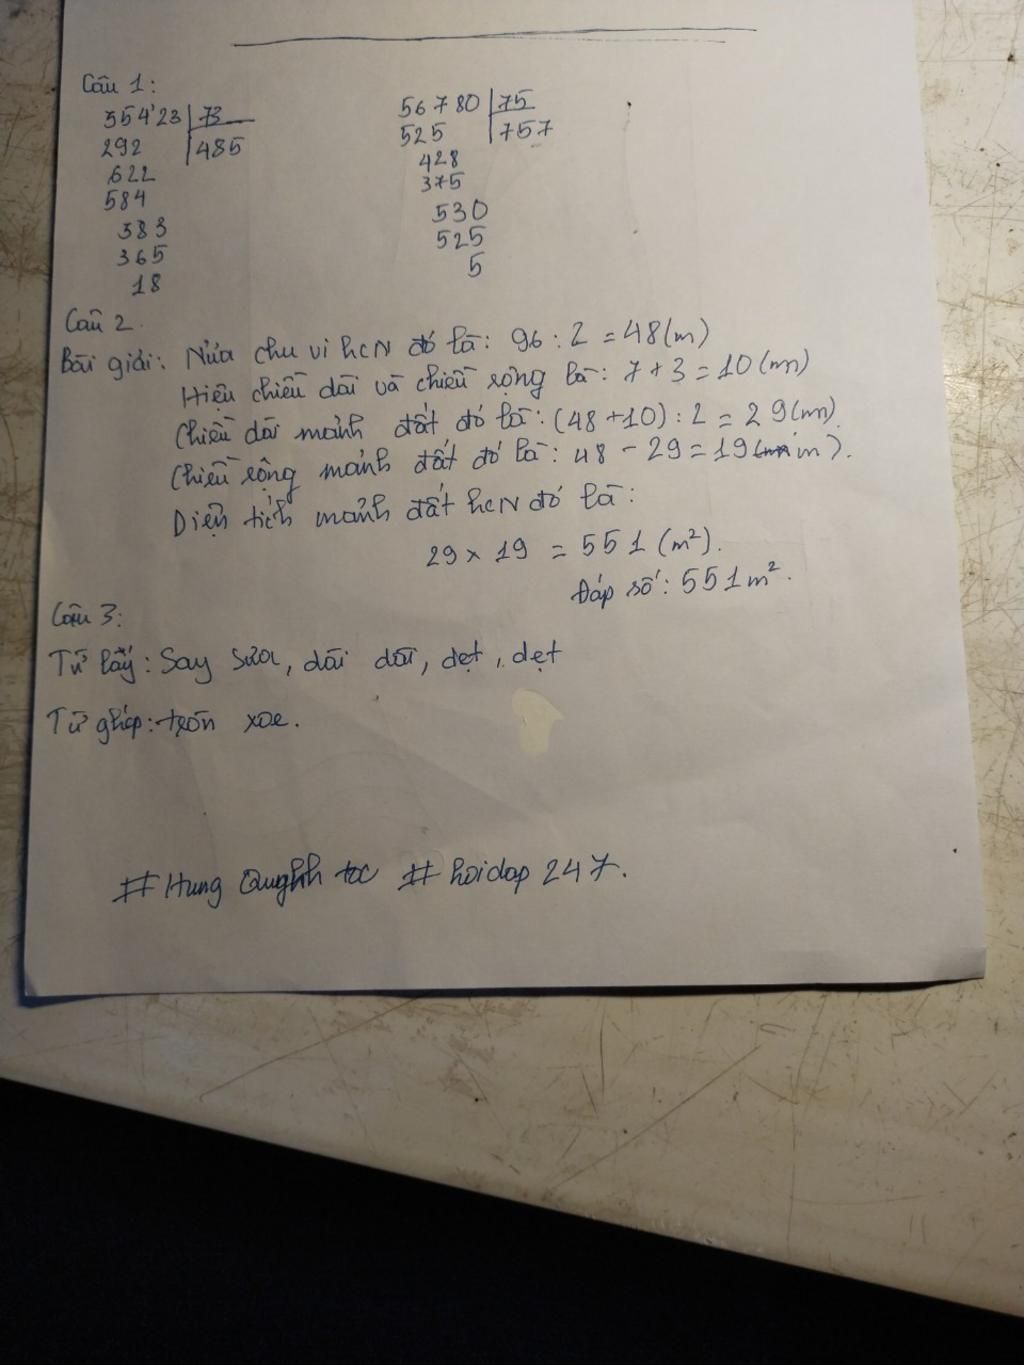 Câu 1:
354'23 73
292 485
622
584
383
365
18
56780 75
525 757
428
375
530
525
5
Câu 2.
Bài giải: Nửa chu vi hcN đó là: 96 : 2 = 48 (m)
Hiệu chiều dài và chiều rộng là: 7 + 3 = 10 (m)
Chiều dài mảnh đất đó là: (48 + 10) : 2 = 29 (m)
Chiều rộng mảnh đất đó là: 48 - 29 = 19 (m).
Diện tích mảnh đất hcN đó là:
29 x 19 = 551 (m²).
Đáp số: 551 m².
Câu 3:
Từ láy: Say sưa, dài dài, dẹt, dẹt
Từ ghép: tròn xoe.
#Hung #hoidap 247.